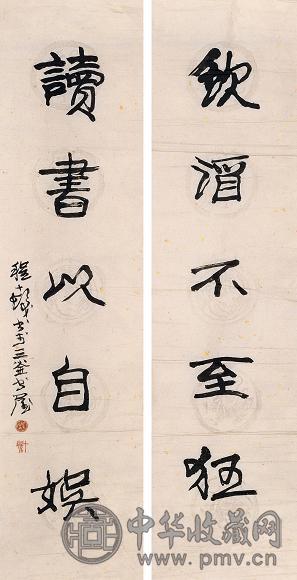 飲酒不至狂
讀書以自娛
程十髮書於三釜書屋
中华收藏网
www.pmv.cn